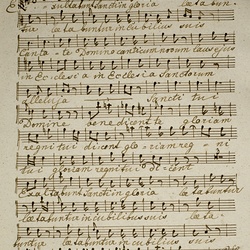 Exultabunt Sancti in gloria læta bun
tur læ ta buntur in cubilibus suis
Canta - te Domino canticum novum laus ejus
in Ecclesia in Ecclesia Sanctorum
alleluja Sancti tui
Domine benedicent te gloriam
regni tui dicent glo - riam reg - ni
tui gloriam regni tui dicent
Exultabunt Sancti in gloria lætabuntur
lætabuntur in cubilibus suis læta -
buntur lætabuntur in cubilibus suis